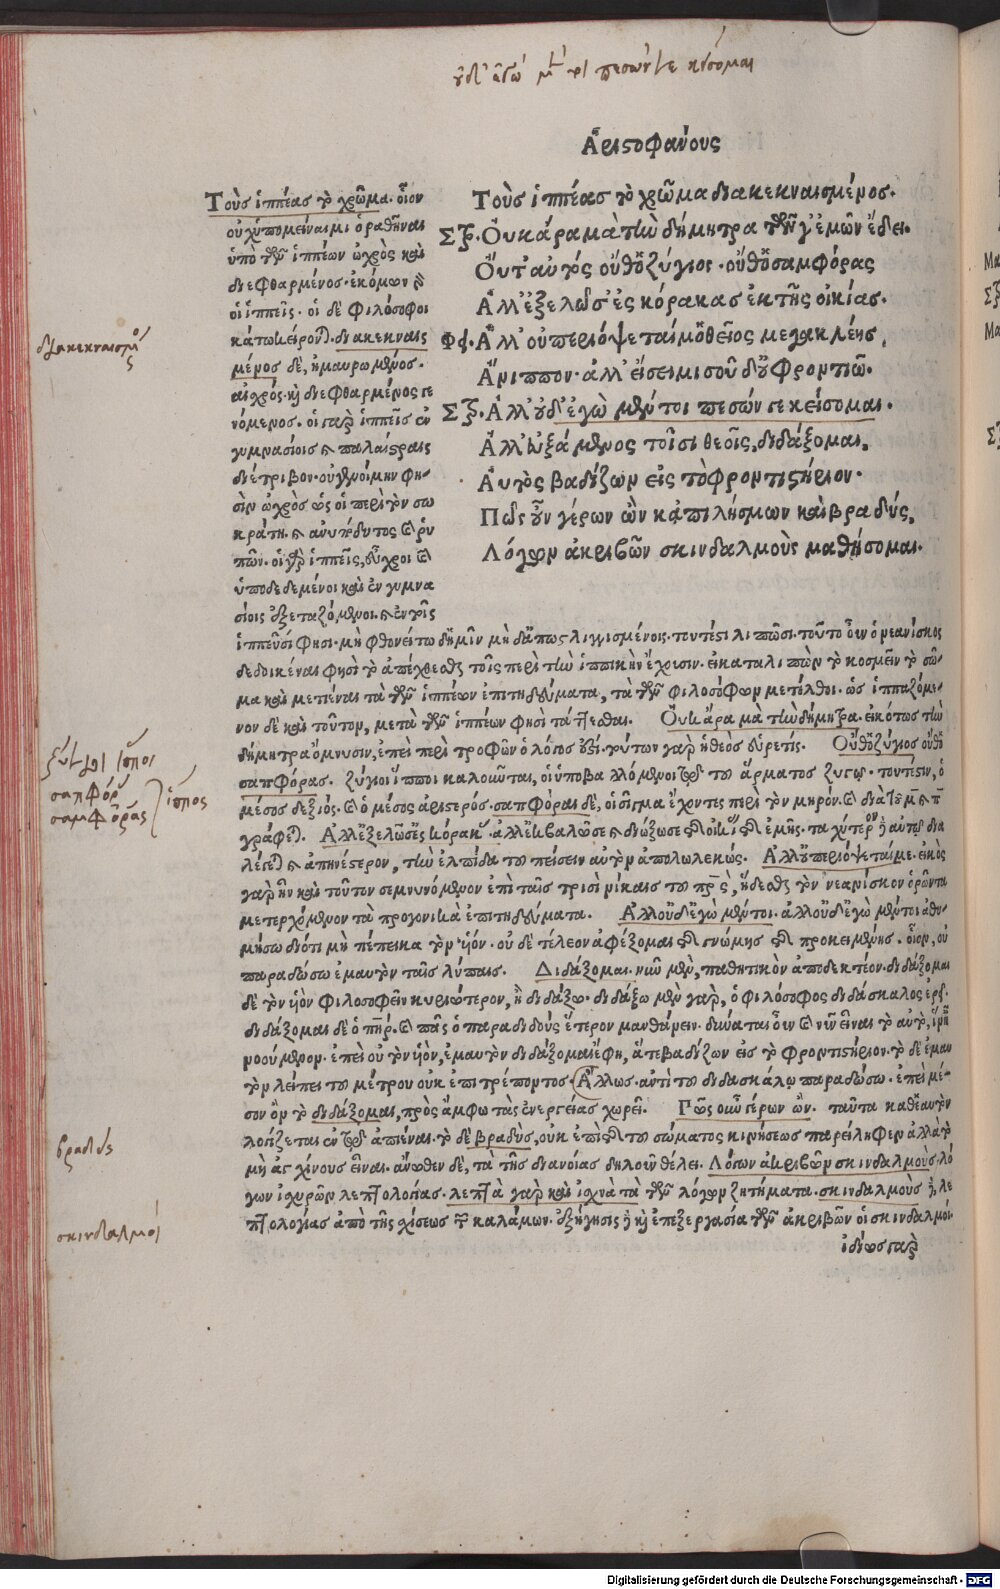 οὐδ' ἐγὼ μέντοι πεσών γε κείσομαι
Ἀριστοφάνους
Τοὺς ἱππέας τὸ χρῶμα διακεκναισμένος.
Στρ. Οὐκ ἄρα μὰ τὴν δήμητρα τῶν γ' ἐμῶν ἔδει.
Οὔτ' αὐτὸς οὔθ' ὁ ζύγιος. οὔθ' ὁ σαμφόρας
Ἀλλ' ἐξελῶ σ' ἐς κόρακας ἐκ τῆς οἰκίας.
Φδ. Ἀλλ' οὐ περιόψεταί μ' ὁ θεῖος μεγακλέης
Ἄνιππον. ἀλλ' εἴσειμι σοῦ δ' οὐ φροντιῶ.
Στρ. Ἀλλ' οὐδ' ἐγὼ μέντοι πεσών γε κείσομαι.
Ἀλλ' εὐξάμενος τοῖσι θεοῖς, διδάξομαι,
Αὐτὸς βαδίζων εἰς τὸ φροντιστήριον.
Πῶς οὖν γέρων ὢν κἀπιλήσμων καὶ βραδύς,
Λόγων ἀκριβῶν σκινδαλμοὺς μαθήσομαι.
Τοὺς ἱππέας τὸ χρῶμα. οἷον
οὐχ ὑπομείναιμι ὁραθῆναι
ὑπὸ τῶν ἱππέων ὠχρὸς καὶ
διεφθαρμένος. ἐκόμων γὰρ
οἱ ἱππεῖς. οἱ δὲ φιλόσοφοι
κάτω κείρονται. διακεκναισ
μένος δὲ, ἠμαυρωμένος.
αἰχρός. καὶ διεφθαρμένος γε
νόμενος. οἱ γὰρ ἱππεῖς ἐν
γυμνασίοις καὶ παλαίστραις
διέτριβον. οὐ γενοίμην φη-
σὶν ὠχρὸς ὡς οἱ περὶ τὸν σω
κράτη. καὶ ἀνυπόδυτος καὶ ῥυ
πῶν. οἱ γὰρ ἱππεῖς, εὖχροι καὶ
ὑποδεδεμένοι καὶ ἐν γυμνα
σίοις ἐξεταζόμενοι. καὶ ἐν τοῖς
ἱππεῦσί φησι. μὴ φθονεῖτω δ' ἡμῖν μὴ δ' ἄπως λιγισμένοις. τουτέστι λιπῶσι. τοῦτο οὖν ὁ νεανίσκος
δεδοικέναι φησὶ τὸ ἀπέχθεσθαι τοῖς περὶ τὴν ἱππικὴν ἔχουσιν. εἰ καταλιπὼν τὸ κοσμεῖν τὸ σῶ-
μα καὶ μετιέναι τὰ τῶν ἱππέων ἐπιτηδεύματα, τὰ τῶν φιλοσόφων μετέλθοι. ὡς ἱππαζόμε-
νον δὲ καὶ τοῦτον, μετὰ τῶν ἱππέων φησὶ τάττεσθαι. Οὐκ ἄρα μὰ τὴν δήμητρα. εἰκότως τὴν
δήμητρα ὄμνυσιν, ἐπεὶ περὶ τροφῶν ὁ λόγος ἐστί. τούτων γὰρ ἡ θεὸς εὑρετίς. Οὔθ' ὁ ζύγιος οὔθ' ὁ
σαπφόρας. ζύγιοι ἵπποι καλοῦνται, οἱ ὑποβαλλόμενοι τῷ τοῦ ἅρματος ζυγῷ. τουτέστιν, ὁ
μέσος δεξιὸς. καὶ ὁ μέσος ἀριστερός. σαπφόραι δὲ, οἱ σῖγμα ἔχοντες περὶ τὸν μηρόν. καὶ διὰ τοῦ μ καὶ π
γράφεται. Ἀλλ' ἐξελῶ σ' ἐς κόρακας. ἀλλ' ἐκβαλῶ σε καὶ διώξω σε τῆς οἰκίας τῆς ἐμῆς.
λέγεται καὶ ἀπηνέστερον, τὴν ἐλπίδα τοῦ πείσειν αὐτὸν ἀπολωλεκώς. Ἀλλ' οὐ περιόψεταί με. εἰκὸς
γὰρ ἦν καὶ τοῦτον σεμνυνόμενον ἐπὶ ταῖς τρισὶ νίκαις τοῦ πατρός, ἥδεσθαι τὸν νεανίσκον ὁρῶντα
μετερχόμενον τὰ προγονικὰ ἐπιτηδεύματα. Ἀλλ' οὐδ' ἐγὼ μέντοι. ἀλλ' οὐδ' ἐγὼ μέντοι ἀθυ-
μήσω διότι μὴ πέπεικα τὸν υἱόν. οὐδὲ τέλεον ἀφέξομαι τῆς γνώμης τῆς προκειμένης. οἷον, οὐ
παραδώσω ἐμαυτὸν ταῖς λύπαις. Διδάξομαι. νῦν μὲν, παθητικὸν ἀποδεκτέον. διδάξομαι
δὲ τὸν υἱὸν φιλοσοφεῖν κυριώτερον, ἢ διδάξω. διδάξω μὲν γὰρ, ὁ φιλόσοφος διδάσκαλος ἐρεῖ.
διδάξομαι δὲ ὁ πατήρ. καὶ πᾶς ὁ παραδιδοὺς ἕτερον μανθάνειν. δύναται οὖν καὶ νῦν εἶναι τὸ αὐτὸ,
νοούμενον. ἐπεὶ οὐ τὸν υἱὸν, ἐμαυτὸν διδάξομαι ἔφη, ἅτε βαδίζων εἰς τὸ φροντιστήριον. τὸ δὲ ἐμαυ
τὸν λείπει τοῦ μέτρου οὐκ ἐπιτρέποντος. Ἄλλως. ἀντὶ τοῦ διδασκάλῳ παραδώσω. ἐπεὶ μέ-
σον ὂν τὸ διδάξομαι, πρὸς ἄμφω τὰς ἐνεργείας χωρεῖ. Πῶς οὖν γέρων ὤν. ταῦτα καθ' ἑαυτὸν
λογίζεται ἐν τῷ ἀπιέναι. τὸ δὲ βραδὺς, οὐκ ἐπὶ τῆς τοῦ σώματος κινήσεως παρείληφεν ἀλλὰ τὸ
μὴ ἀγχίνους εἶναι. ἄνωθεν δὲ, τὰ τῆς διανοίας δηλοῦν θέλει. Λόγων ἀκριβῶν σκινδαλμοὺς. λό
γων ἰσχυρῶν λεπτολογίας. λεπτὰ γὰρ καὶ ἰσχνὰ τὰ τῶν λόγων ζητήματα. σκινδαλμοὺς δὲ, λε
πτολογίας ἀπὸ τῆς σχίσεως τῶν καλάμων. ἐξήγησις δὲ καὶ ἐπεξεργασία τῶν ἀκριβῶν οἱ σκινδαλμοι.
ἰδίως γὰρ
διακεκναισμένος
ζύγιοι ἵπποι
σαπφόρας
σαμφόρας
ἵππος
βραδύς
σκινδαλμοί
Digitalisierung gefördert durch die Deutsche Forschungsgemeinschaft - DFG